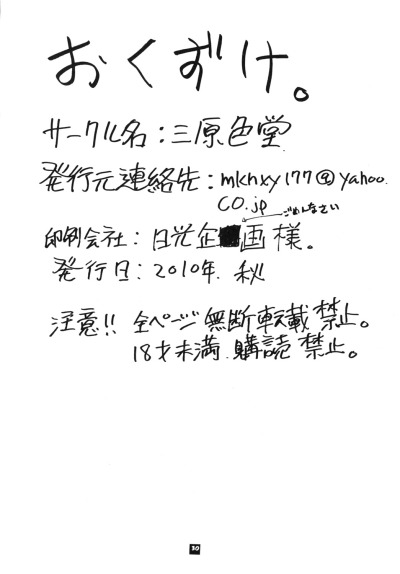 おくずけ。
サークル名：三原色堂
発行元連絡先：mknxy177@yahoo.
co.jp
ごめんなさい
印刷会社：日光企画様。
発行日：2010年 秋
注意!! 全ページ無断転載禁止。
18才未満 購読禁止。
30